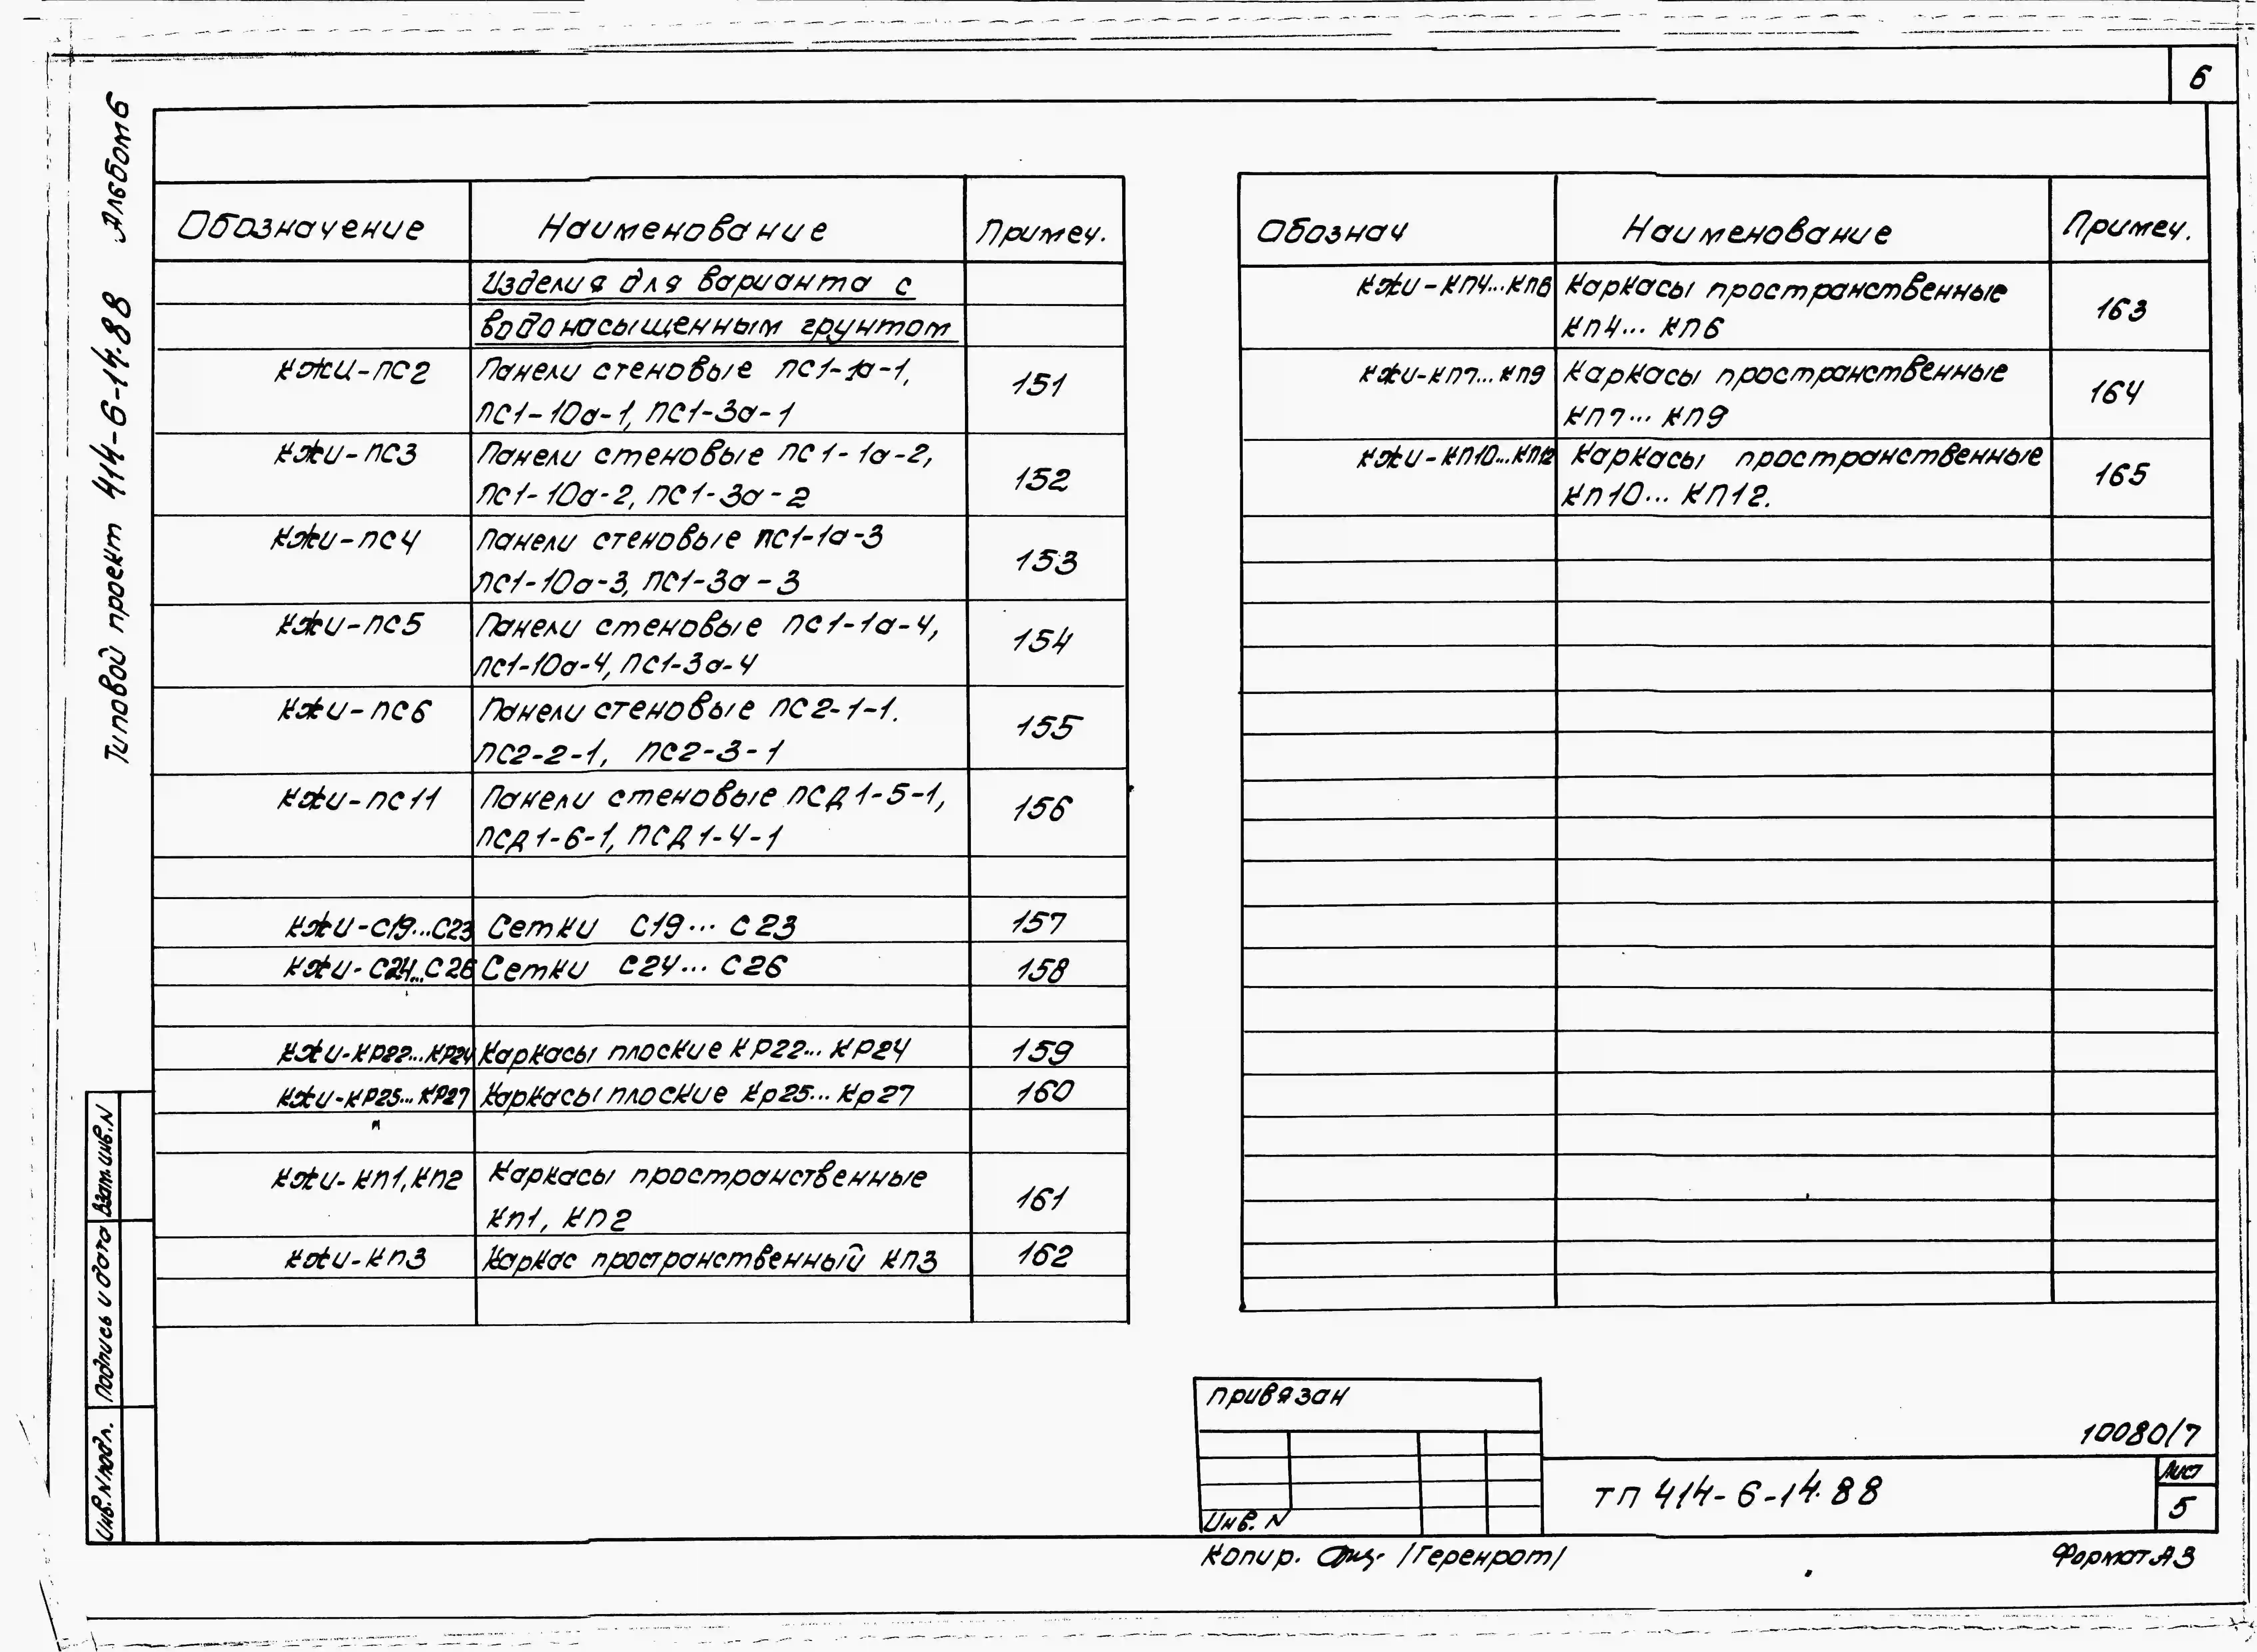 6
Типовой проект 414-6-14.88 Альбом 6
Обозначение Наименование Примеч.
Изделия для варианта с
водонасыщенным грунтом
КЖИ-ПС2 Панели стеновые ПС1-1а-1, 151
ПС1-10а-1, ПС1-3а-1
КЖИ-ПС3 Панели стеновые ПС1-1а-2, 152
ПС1-10а-2, ПС1-3а-2
КЖИ-ПС4 Панели стеновые ПС1-1а-3 153
ПС1-10а-3, ПС1-3а-3
КЖИ-ПС5 Панели стеновые ПС1-1а-4, 154
ПС1-10а-4, ПС1-3а-4
КЖИ-ПС6 Панели стеновые ПС2-1-1. 155
ПС2-2-1, ПС2-3-1
КЖИ-ПС11 Панели стеновые ПСД1-5-1, 156
ПСД1-6-1, ПСД1-4-1
КЖИ-С19...С23 Сетки С19... С23 157
КЖИ-С24...С26 Сетки С24... С26 158
КЖИ-КР22...КР24 Каркасы плоские КР22... КР24 159
КЖИ-КР25...КР27 Каркасы плоские Кр25... Кр27 160
КЖИ-КП1, КП2 Каркасы пространственные 161
КП1, КП2
КЖИ-КП3 Каркас пространственный КП3 162
Обознач Наименование Примеч.
КЖИ-КП4...КП6 Каркасы пространственные 163
КП4... КП6
КЖИ-КП7...КП9 Каркасы пространственные 164
КП7... КП9
КЖИ-КП10...КП12 Каркасы пространственные 165
КП10... КП12.
Взам.инв.N
Подпись и дата
Инв.N подл.
Привязан
Инв. N
10080/7
ТП 414-6-14.88
Лист
5
Копир. /Геренрот/
Формат А3